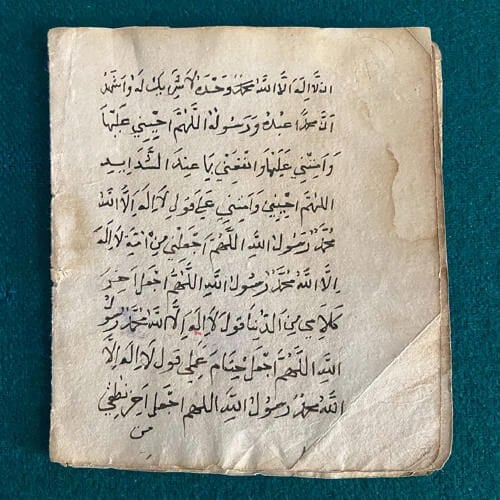 ان لا اله الا الله محمد وحده لا شريك له واشهد
ان محمدا عبده ورسوله اللهم احيني عليها
وامتني عليها وانفعني يا عند الشدايد
اللهم احيني وامتني على قول لا اله الا الله
محمد رسول الله اللهم اجعلني من امة لا اله
الا الله محمد رسول الله اللهم اجعل اخر
كلامي من الدنيا قول لا اله الا الله محمد رسول
الله اللهم اجعل ختام عملي قول لا اله الا
الله محمد رسول الله اللهم اجعل اخر نطقي
من